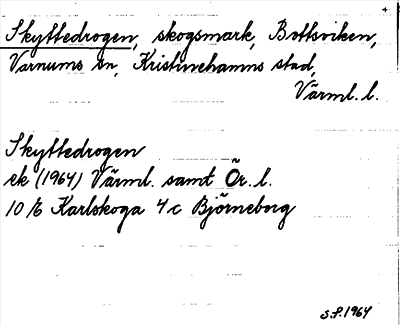 Skyttedrogen, skogsmark, Bottsviken,
Varnums sn, Kristinehamns stad,
Värml. l.
Skyttedrogen
ek (1964) Värml. samt Ör. l.
10 E Karlskoga 4 c Björneborg
S.P. 1964